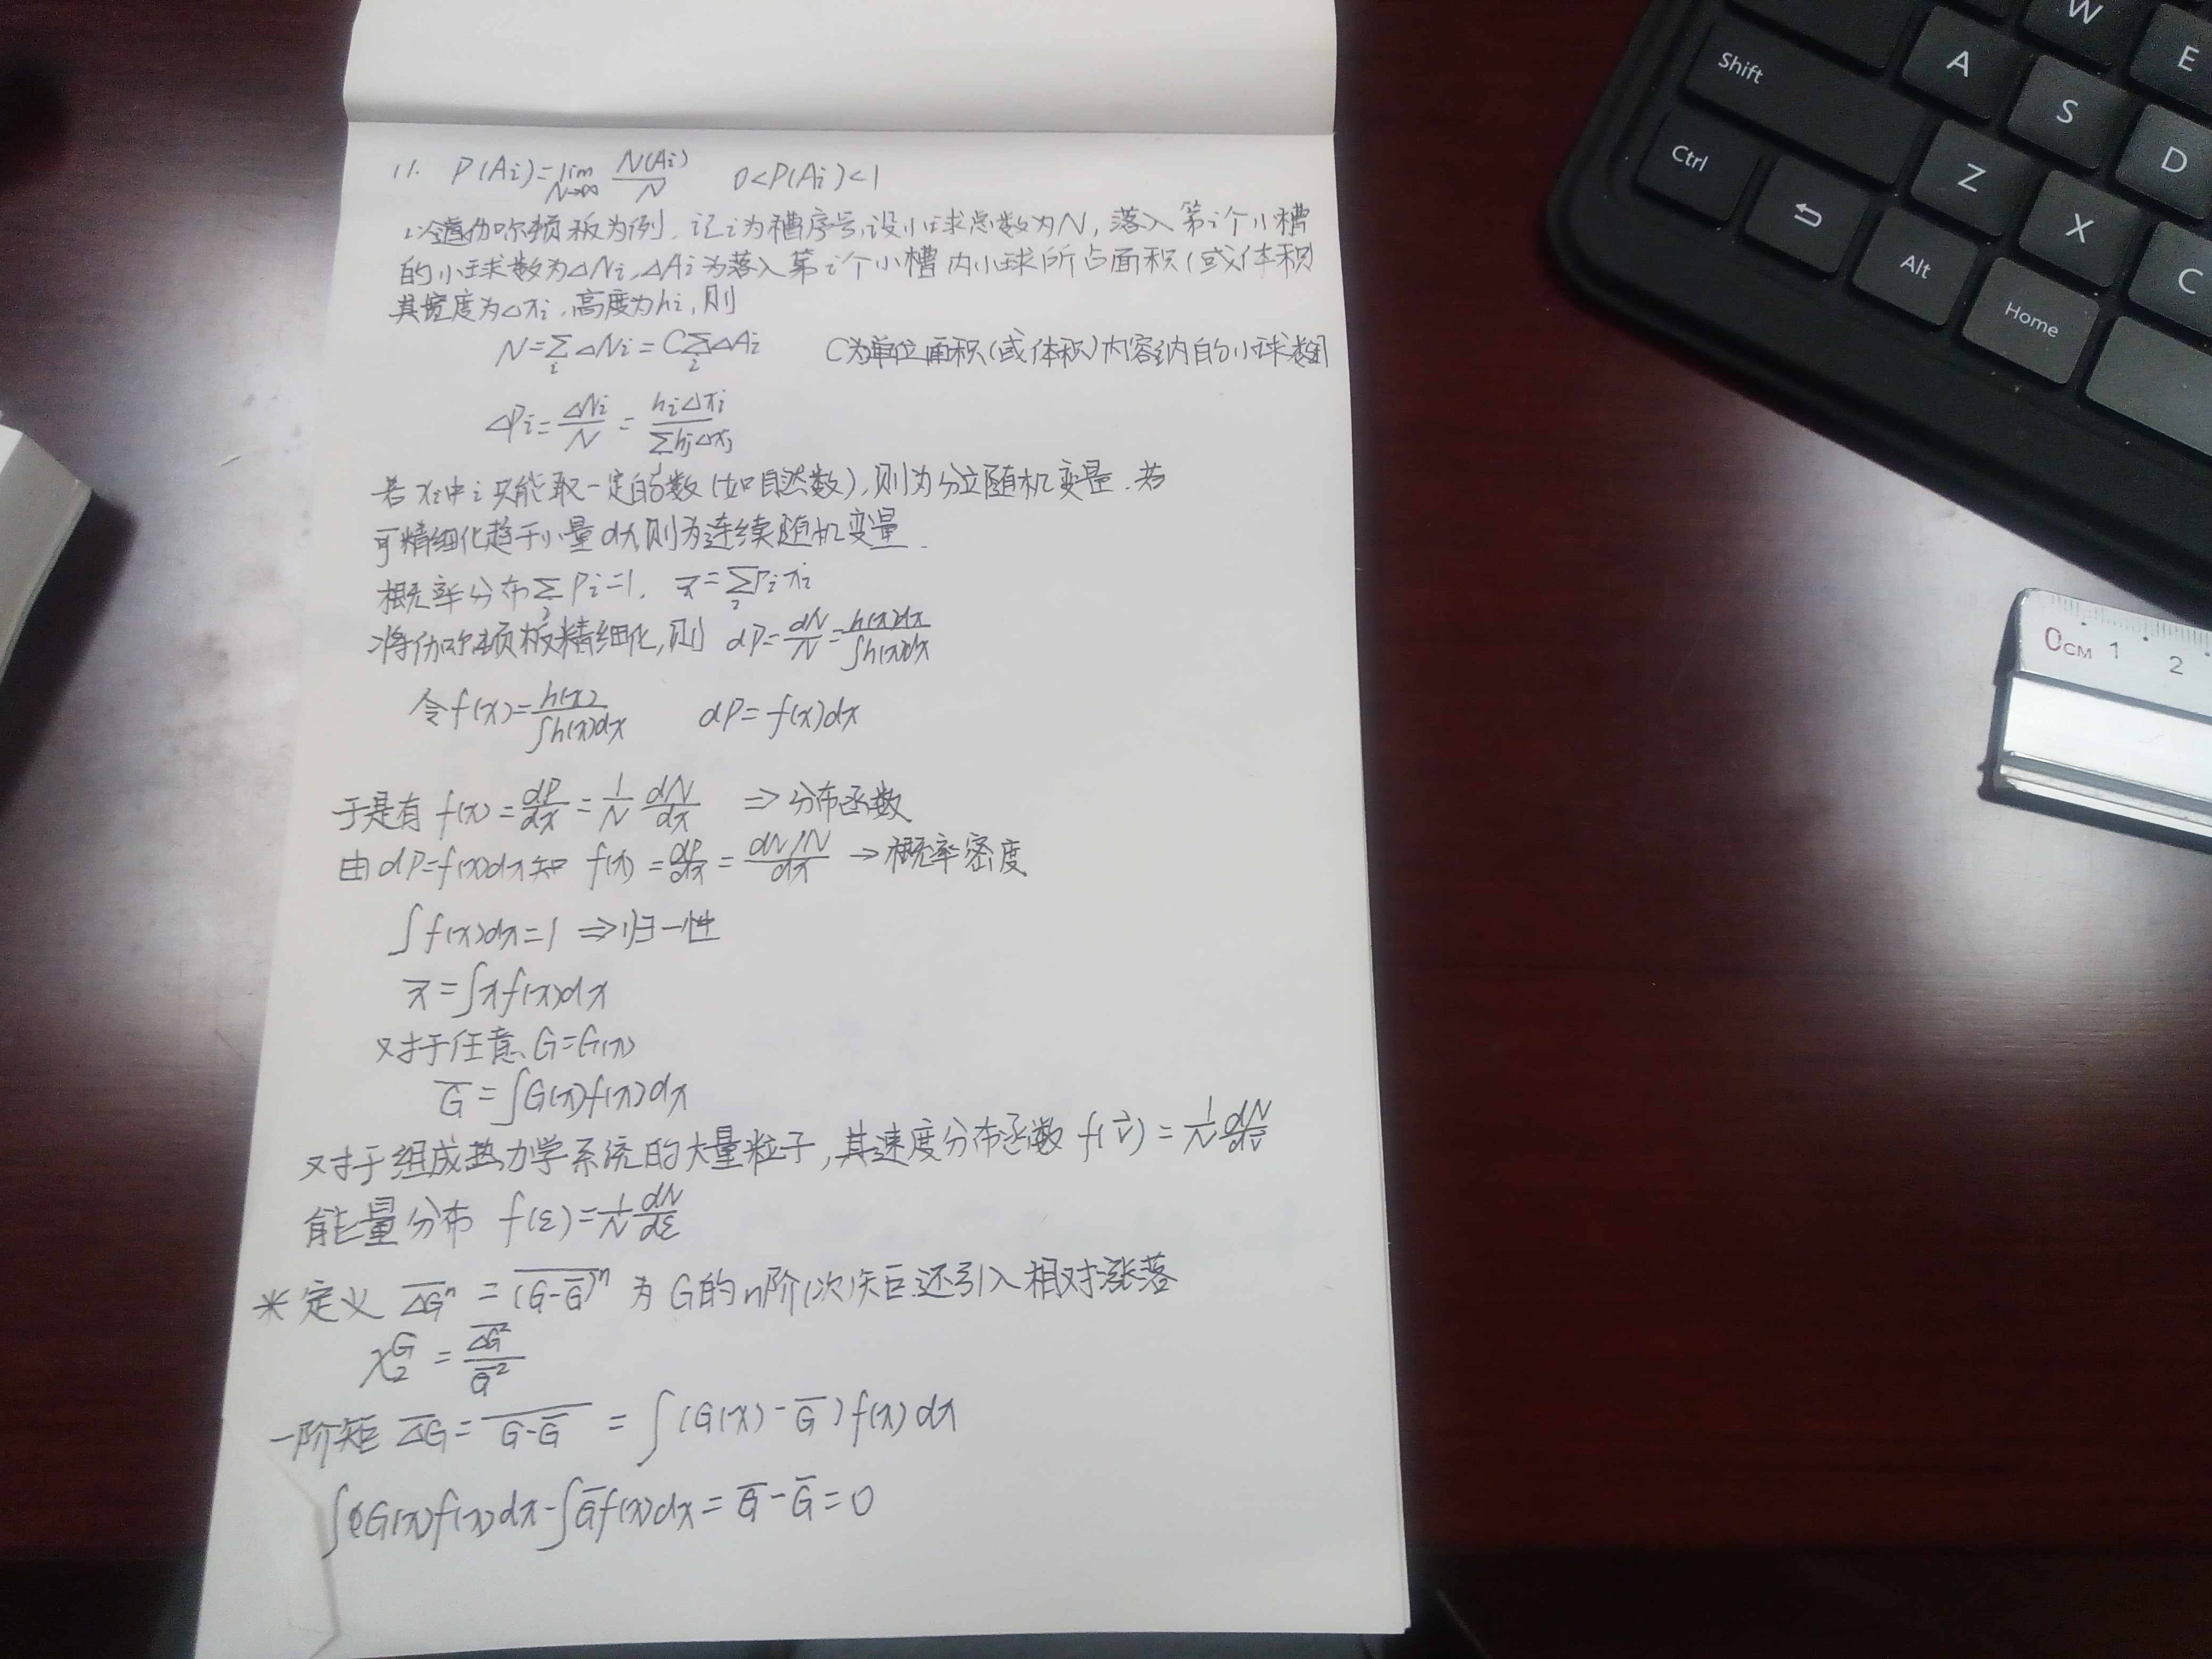 11. P(Ai)=lim N→∞ N(Ai)/N 0<P(Ai)<1
以伽尔顿板为例, 记i为槽序号,设小球总数为N, 落入第i个小槽
的小球数为△Ni,△Ai为落入第i个小槽内小球所占面积(或体积
其宽度为△xi,高度为hi,则
N=∑i △Ni=C∑i △Ai C为单位面积(或体积)内容纳的小球数
△Pi=△Ni/N=hi△xi/∑hj△xj
若xi中i只能取一定的数(如自然数),则为分立随机变量.若
可精细化趋于小量dx,则为连续随机变量.
概率分布∑i Pi=1, x̄=∑i Pi xi
将伽尔顿板精细化,则 dP=dN/N=h(x)dx/∫h(x)dx
令f(x)=h(x)/∫h(x)dx dP=f(x)dx
于是有 f(x)=dP/dx=1/N dN/dx ⇒分布函数
由dP=f(x)dx知 f(x)=dP/dx=dN/N/dx →概率密度
∫f(x)dx=1 ⇒归一性
x̄=∫xf(x)dx
又对于任意G=G(x)
Ḡ=∫G(x)f(x)dx
又对于组成热力学系统的大量粒子,其速度分布函数 f(v⃗)=1/N dN/dv⃗
能量分布 f(ε)=1/N dN/dε
*定义 \overline{△G^n}=\overline{(G-Ḡ)^n} 为G的n阶(次)矩.还引入相对涨落
χ₂^G=\overline{△G²}/Ḡ²
一阶矩 \overline{△G}=\overline{G-Ḡ}=∫(G(x)-Ḡ)f(x)dx
∫G(x)f(x)dx-∫Ḡf(x)dx=Ḡ-Ḡ=0
Shift
Ctrl
A
W
E
S
D
Z
X
C
Alt
Home
0CM 1 2